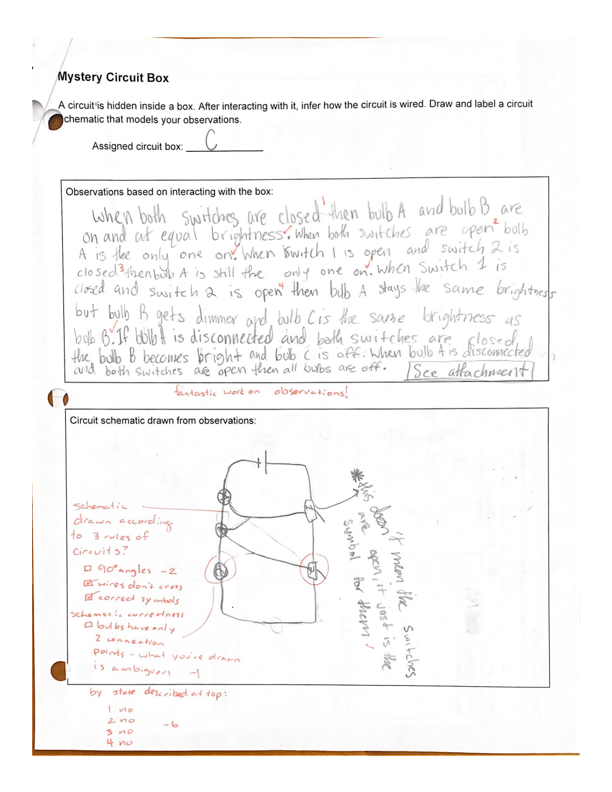 Mystery Circuit Box
A circuit is hidden inside a box. After interacting with it, infer how the circuit is wired. Draw and label a circuit
schematic that models your observations.
Assigned circuit box: C
Observations based on interacting with the box:
When both switches are closed 1 then bulb A and bulb B are
on and at equal brightness. When both switches are open 2 bulb
A is the only one on. When switch 1 is open and switch 2 is
closed 3 then bulb A is still the only one on. When switch 1 is
closed and switch 2 is open 4 then bulb A stays the same brightness
but bulb B gets dimmer and bulb C is the same brightness as
bulb B. If bulb A is disconnected and both switches are closed,
the bulb B becomes bright and bulb C is off. When bulb A is disconnected
and both switches are open then all bulbs are off. See attachment
fantastic work on observations!
Circuit schematic drawn from observations:
schematic
drawn according
to 3 rules of
circuits?
90° angles -2
wires don't cross
correct symbols
schematic correctness
bulbs have only
2 connection
points - what you've drawn
is ambiguous -1
*this doesn't mean the switches
are open, it just is the
symbol for them!
by state described at top:
1 no
2 no
3 no
4 no
-6